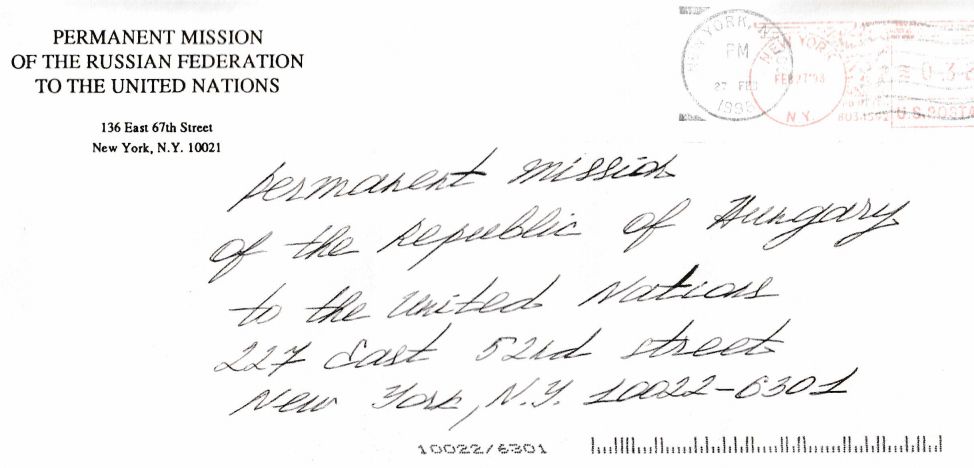 PERMANENT MISSION
OF THE RUSSIAN FEDERATION
TO THE UNITED NATIONS
136 East 67th Street
New York, N.Y. 10021
NEW YORK, NY
PM
27 FEB
1998
YORK
FEB 27'98
N.Y.
U.S. POSTA
Permanent Mission
of the Republic of Hungary
to the United Nations
227 East 52nd street
New York, N.Y. 10022-6301
10022/6301